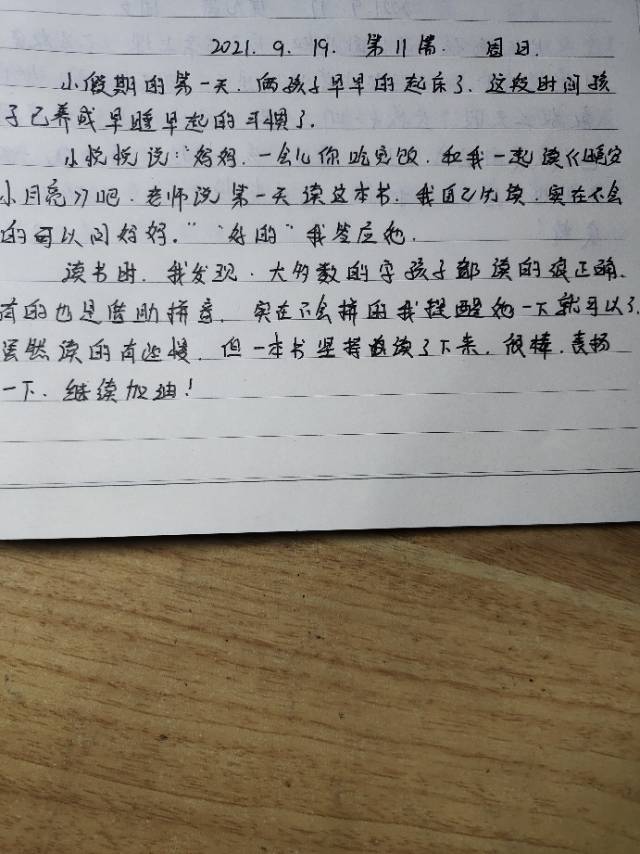 2021.9.19. 第11篇 周日.
小假期的第一天.俩孩子早早的起床了.这段时间孩
子已养成早睡早起的习惯了.
小悦悦说:"妈妈.一会儿你吃完饭.和我一起读《晚安
小月亮》吧.老师说第一天读这本书.我自己先读.实在不会
的可以问妈妈.""好的"我答应她.
读书时.我发现.大多数的字孩子都读的很正确.
有的也是借助拼音.实在不会拼的我提醒她一下就可以了.
虽然读的有些慢.但一本书坚持读了下来.很棒.表扬
一下.继续加油!